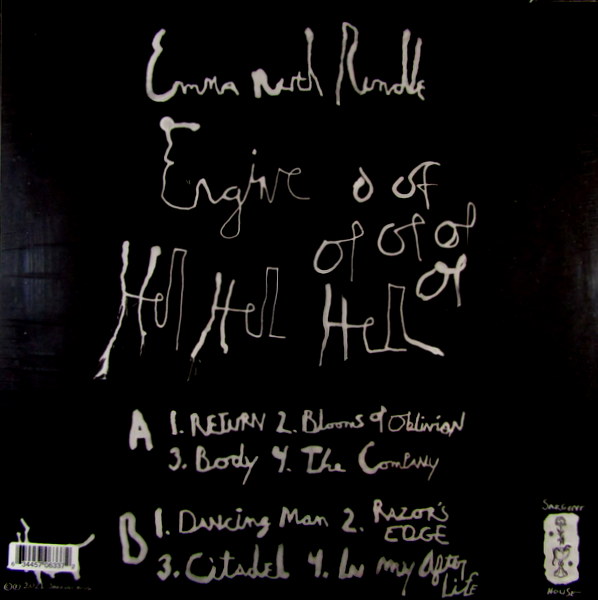 Emma Ruth Rundle
Engine o of
of of of
of
Hell Hell Hell
A 1. RETURN 2. Blooms of Oblivion
3. Body 4. The Company
B 1. Dancing Man 2. RAZOR'S
EDGE
3. Citadel 4. In my After
Life
SARGENT
HOUSE